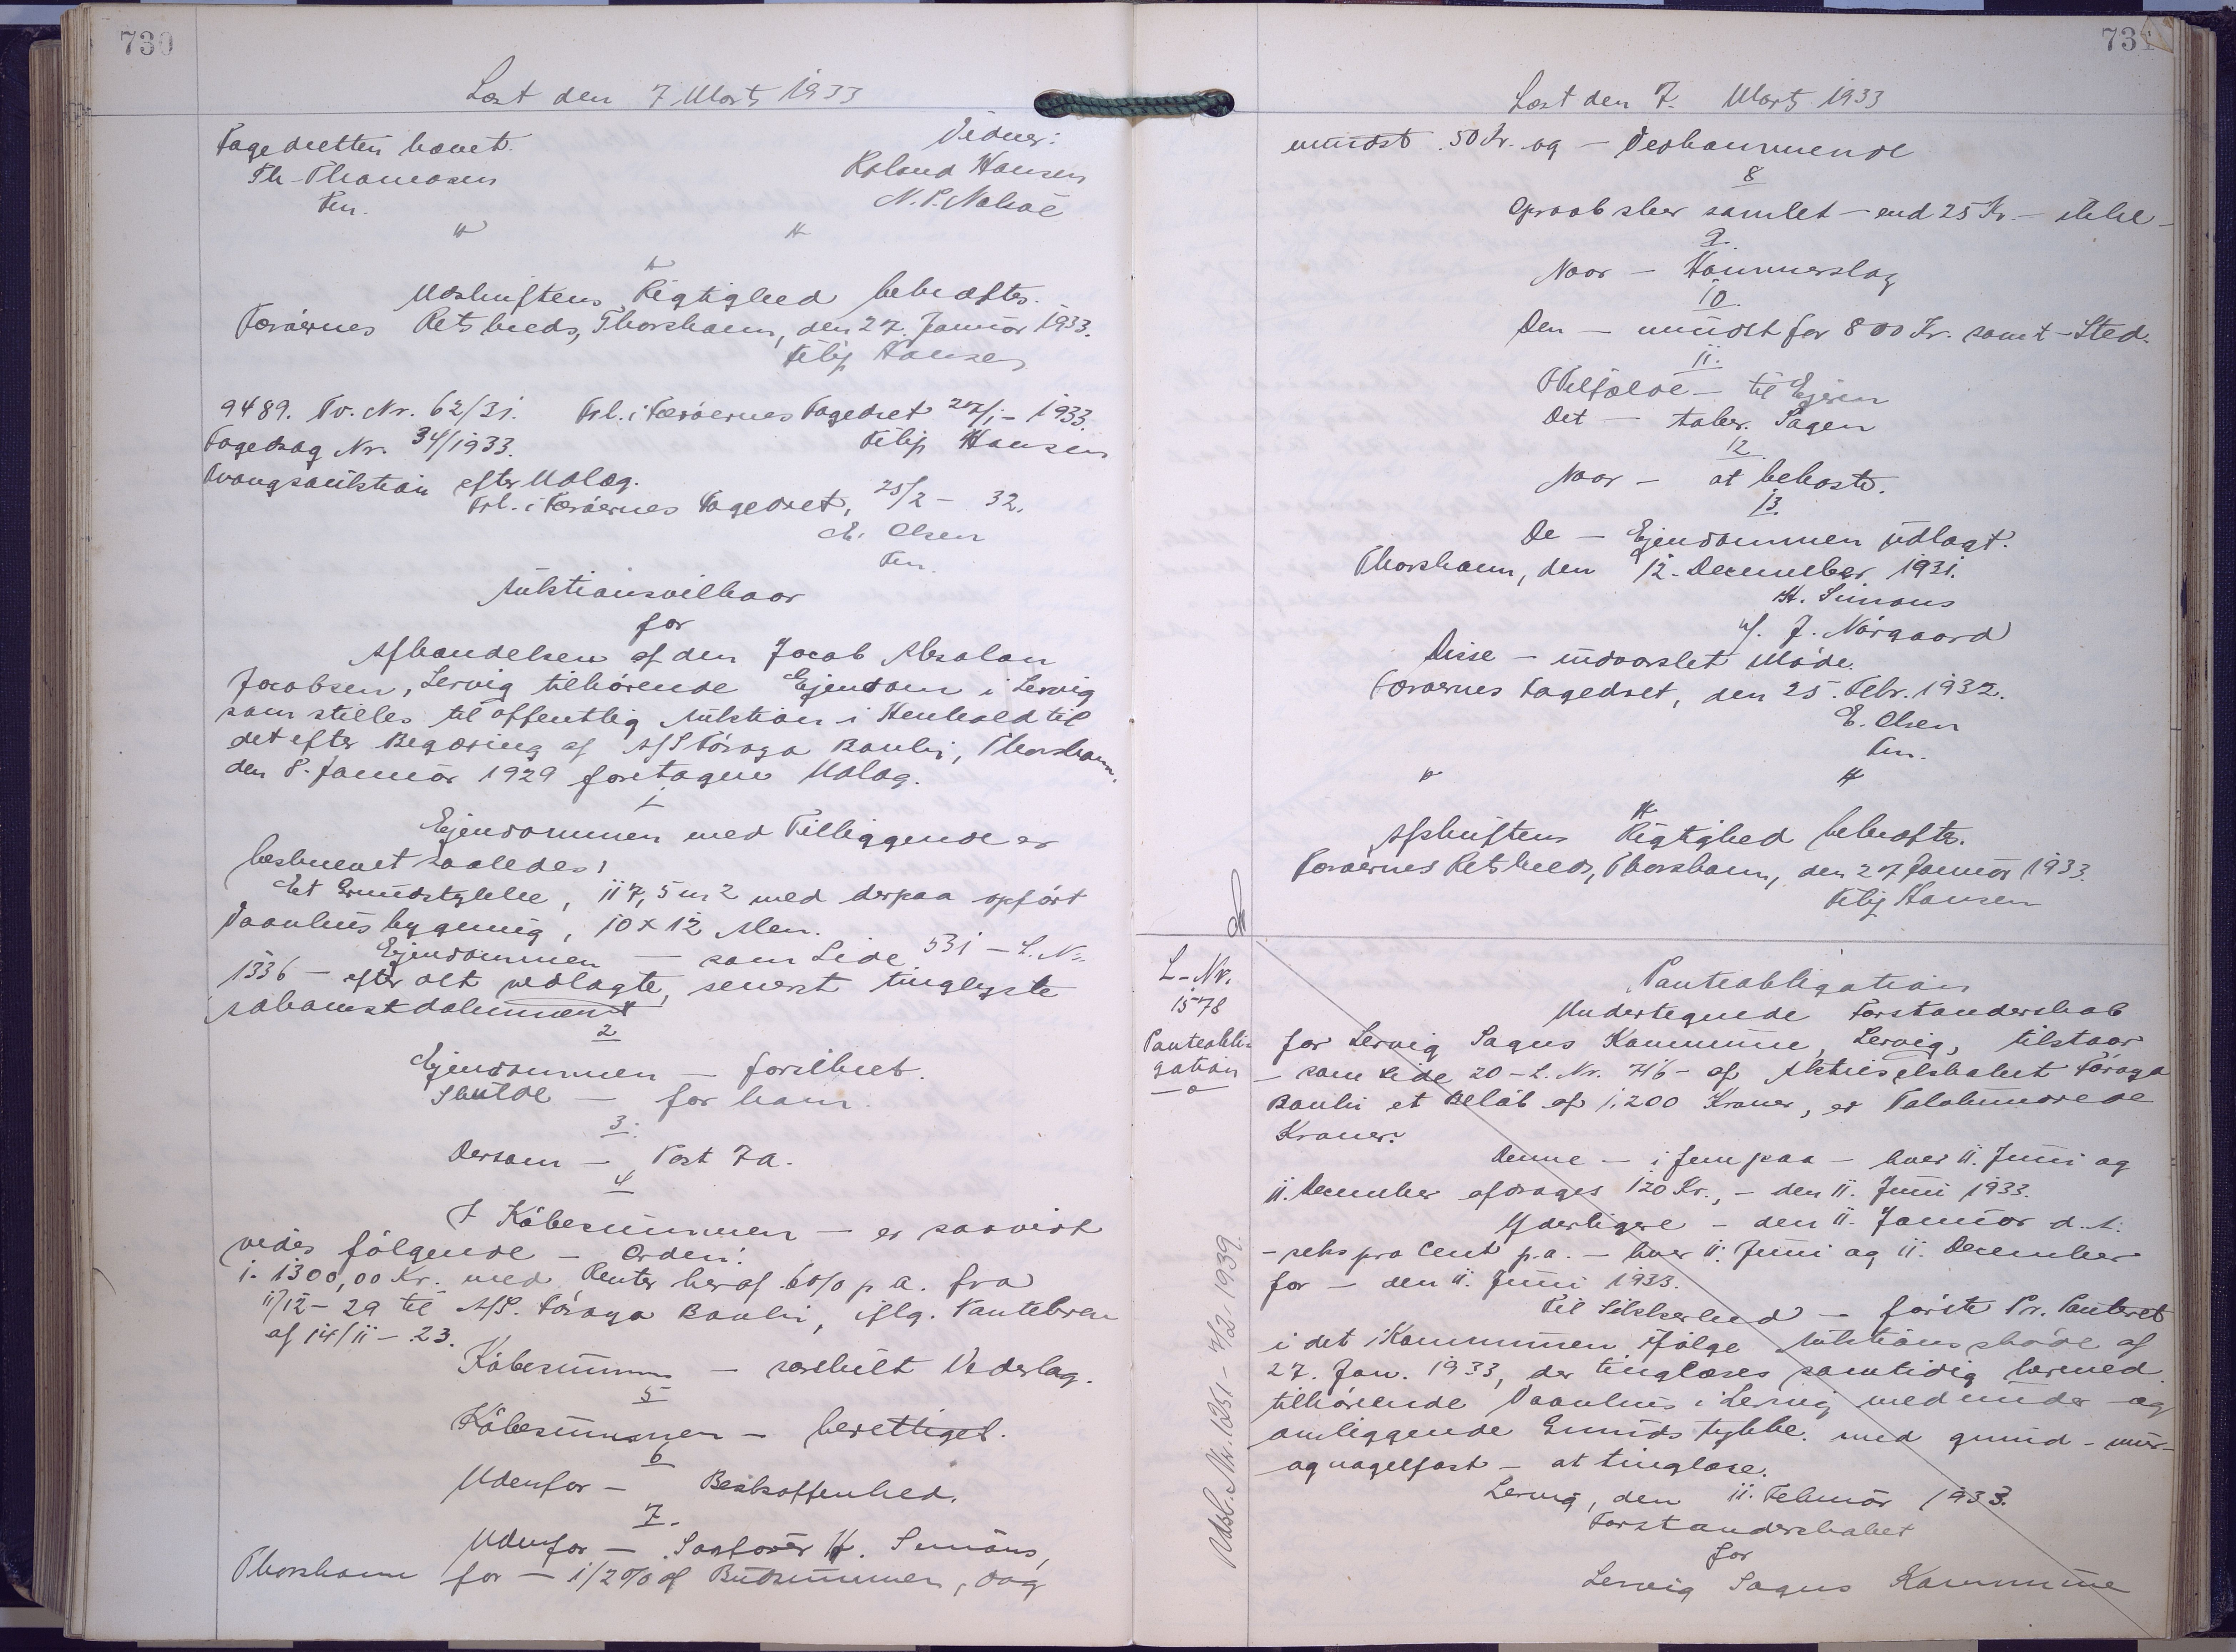 730
Læst den 7 Marts 1933
Fogedretten hævet.
Vidner:
Th. Thomasen
Roland Hansen
Fm.
N. P. Nolsøe
Udskriftens Rigtighed bekræftes.
Færøernes Retskreds, Thorshavn, den 27. Januar 1933.
Filip Hansen
9489. Tv. Nr. 62/31. Frl. i Færøernes Fogedret 27/1 - 1933.
Fogedsag Nr. 34/1933. Filip Hansen
Tvangsauktion efter Udlæg.
Frl. i Færøernes Fogedret, 25/2 - 32.
E. Olsen
Fm.
Auktionsvilkaar
for
Afhændelsen af den Jacob Absalon
Jacobsen, Lervig tilhørende Ejendom i Lervig
som stilles til offentlig Auktion i Henhold til
det efter Begæring af A/S Föroya Banki, Thorshavn,
den 8. Januar 1929 foretagne Udlæg.
1
Ejendommen med Tilliggende er
beskrevet saaledes:
Et Grundstykke, 117,5 m2 med derpaa opført
Vaanhusbygning, 10 x 12 Alen.
Ejendommen — som Side 531 — L. Nr.
1336 — efter det vedlagte, senest tinglyste
Adkomstdokument
2
Ejendommen — forsikret.
Skulde — for ham.
3.
Dersom — Post 7a.
4
I Købesummen — er saavidt
vides følgende — Orden:
1. 1300,00 Kr. med Renter heraf 6% p a. fra
11/12 - 29 til A/S. Föroya Banki, iflg. Pantebrev
af 14/11 - 23.
Købesummen — særskilt Vederlag.
5
Købesummen — berettiget.
6
Udenfor — Beskaffenhed.
7.
Udenfor — Sagfører H. Simons,
Thorshavn for — 1/2% af Budsummen, dog
731
Læst den 7. Marts 1933
mindst 50 Kr. og — Vedkommende
8
Opraab sker samlet — end 25 Kr. — ikke —
9.
Naar — Hammerslag
10.
Den — mindst for 800 Kr. samt — Sted.
11.
I Tilfælde — til Ejeren
Det — taber Sagen
12.
Naar — at bekoste.
13.
De — Ejendommen udlagt.
Thorshavn, den 12. December 1931.
H. Simons
v/. J. Nórgaard
Disse — indvarslet Møde.
Færøernes Fogedret, den 25. Febr. 1932.
E. Olsen
Fm.
Afskriftens Rigtighed bekræftes.
Færøernes Retskreds, Thorshavn, den 27 Januar 1933.
Filip Hansen
L - Nr.
1578
Panteobli-
gation
Udsl. Nr. 1251 - 7/2 1939.
Panteobligation
Undertegnede Forstanderskab
for Lervig Sogns Kommune, Lervig, tilstaar
— som Side 20 - L. Nr. 716 — af Aktieselskabet Föroya
Banki et Beløb af 1.200 Kroner, er Tolvhundrede
Kroner.
Denne — i fem paa — hver 11. Juni og
11. December afdrages 120 Kr., — den 11. Juni 1933.
Yderligere — den 11. Januar d. A.
— seks pro Cent p.a. — hver 11. Juni og 11. December
for — den 11. Juni 1933.
Til Sikkerhed — første Pr. Panteret
i det Kommunen ifølge Auktionsskøde af
27. Jan. 1933, der tinglæses samtidig hermed
tilhørende Vaanhus i Lervig med under - og
omliggende Grundstykke. med grund - mur -
og nagelfast — at tinglæse.
Lervig, den 11. Februar 1933.
Forstanderskabet
for
Lervig Sogns Kommune